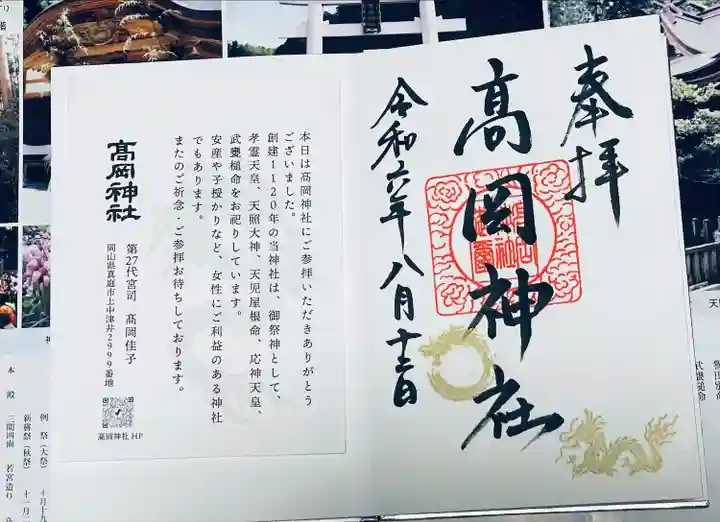 奉拝
高岡神社
令和六年八月十三日
本日は高岡神社にご参拝いただきありがとう
ございました。
創建1120年の当神社は、御祭神として、
孝霊天皇、天照大神、天児屋根命、応神天皇、
武甕槌命をお祀りしています。
安産や子授かりなど、女性にご利益のある神社
でもあります。
またのご祈念・ご参拝お待ちしております。
髙岡神社
第27代宮司 髙岡佳子
岡山県真庭市上中津井2999番地
高岡神社 HP
例 祭(大祭) 十月十九
新嘗祭(秋祭) 十一月二
本 殿 三間四面 若宮造り